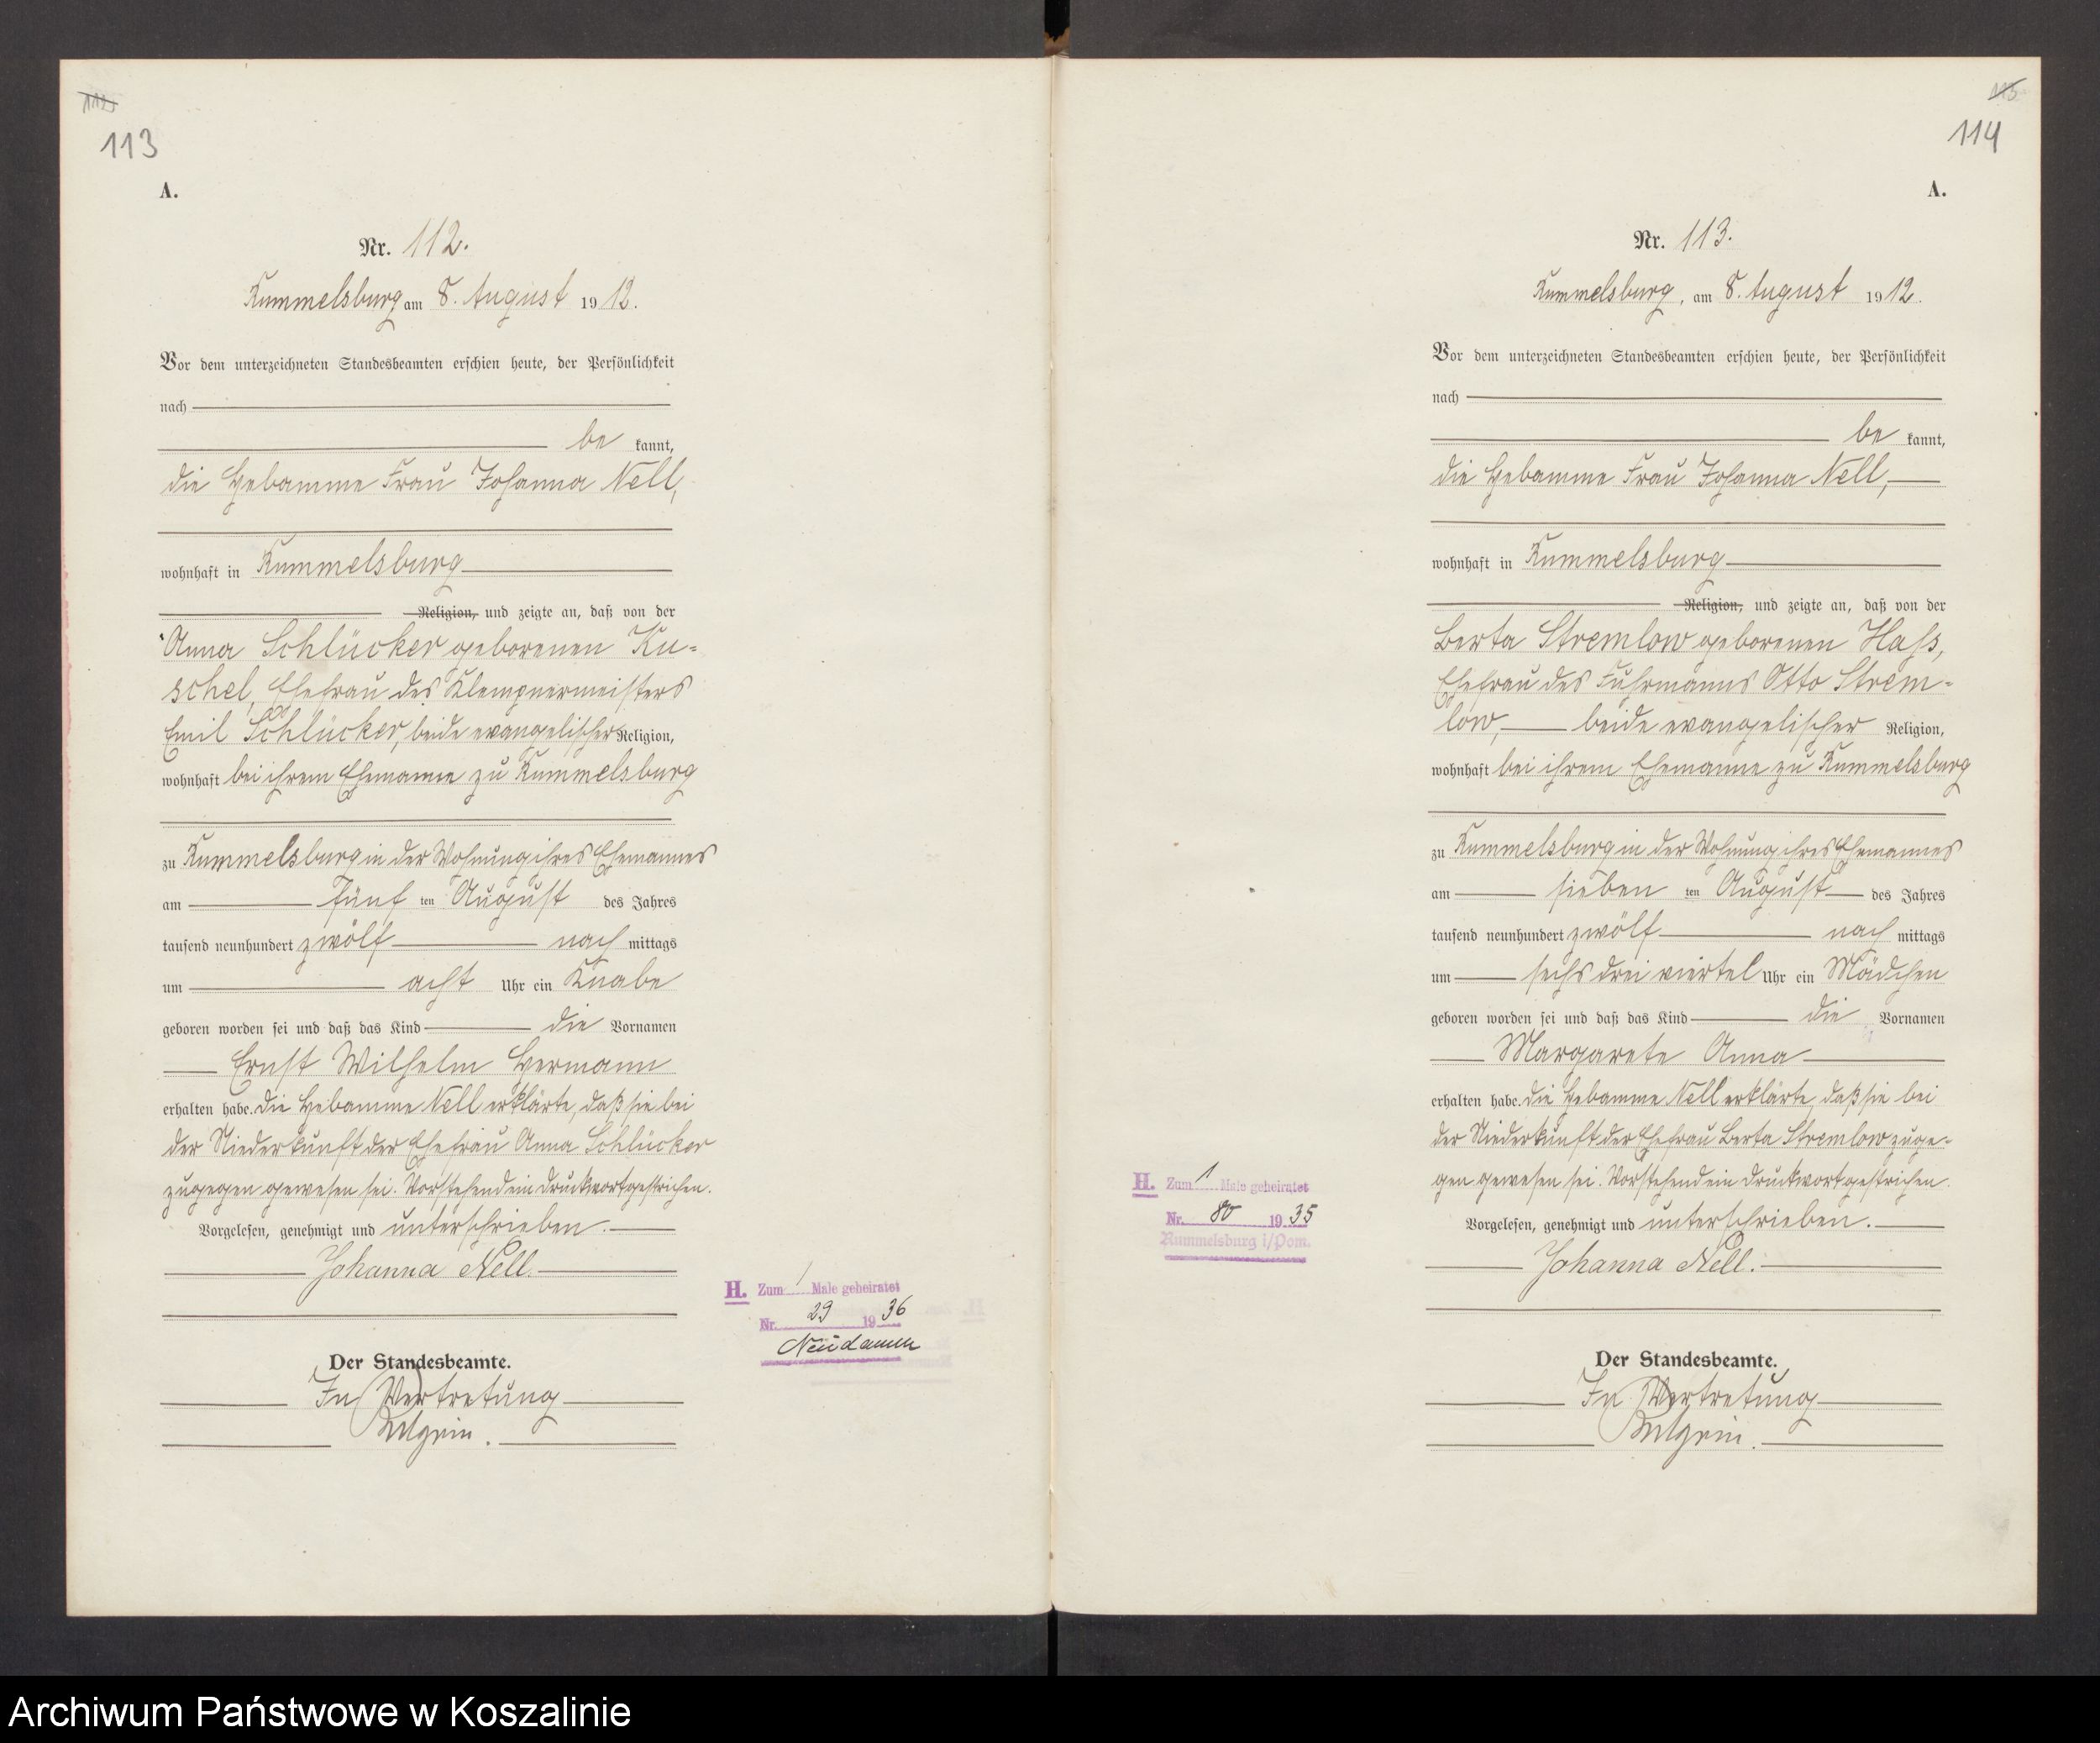 113
A.
Nr. 112.
Rummelsburg am 8. August 1912.
Vor dem unterzeichneten Standesbeamten erschien heute, der Persönlichkeit
nach
be kannt,
die Hebamme Frau Johanna Nell,
wohnhaft in Rummelsburg
Religion, und zeigte an, daß von der
Anna Schlücker geborenen Ku-
schel, Ehefrau des Klempnermeisters
Emil Schlücker, beide evangelischer Religion,
wohnhaft bei ihrem Ehemanne zu Rummelsburg
zu Rummelsburg in der Wohnung ihres Ehemannes
am fünf ten August des Jahres
tausend neunhundert zwölf nach mittags
um acht Uhr ein Knabe
geboren worden sei und daß das Kind die Vornamen
Ernst Wilhelm Hermann
erhalten habe. Die Hebamme Nell erklärte, daß sie bei
der Niederkunft der Ehefrau Anna Schlücker
zugegen gewesen sei. Vorstehend ein Druckwort gestrichen.
Vorgelesen, genehmigt und unterschrieben.
Johanna Nell.
Der Standesbeamte.
In Vertretung
H. Zum 1 Male geheiratet
Nr. 29 1936
Neudamm
115
114
A.
Nr. 113.
Rummelsburg, am 8. August 1912.
Vor dem unterzeichneten Standesbeamten erschien heute, der Persönlichkeit
nach
be kannt,
die Hebamme Frau Johanna Nell,
wohnhaft in Rummelsburg
Religion, und zeigte an, daß von der
Berta Stremlow geborenen Hass,
Ehefrau des Fuhrmanns Otto Strem-
low, beide evangelischer Religion,
wohnhaft bei ihrem Ehemanne zu Rummelsburg
zu Rummelsburg in der Wohnung ihres Ehemannes
am sieben ten August des Jahres
tausend neunhundert zwölf nach mittags
um sechs drei viertel Uhr ein Mädchen
geboren worden sei und daß das Kind die Vornamen
Margarete Anna
erhalten habe. Die Hebamme Nell erklärte, daß sie bei
der Niederkunft der Ehefrau Berta Stremlow zuge-
gen gewesen sei. Vorstehend ein Druckwort gestrichen.
Vorgelesen, genehmigt und unterschrieben.
Johanna Nell.
Der Standesbeamte.
In Vertretung
H. Zum 1 Male geheiratet
Nr. 80 1935
Rummelsburg i/Pom.
Archiwum Państwowe w Koszalinie